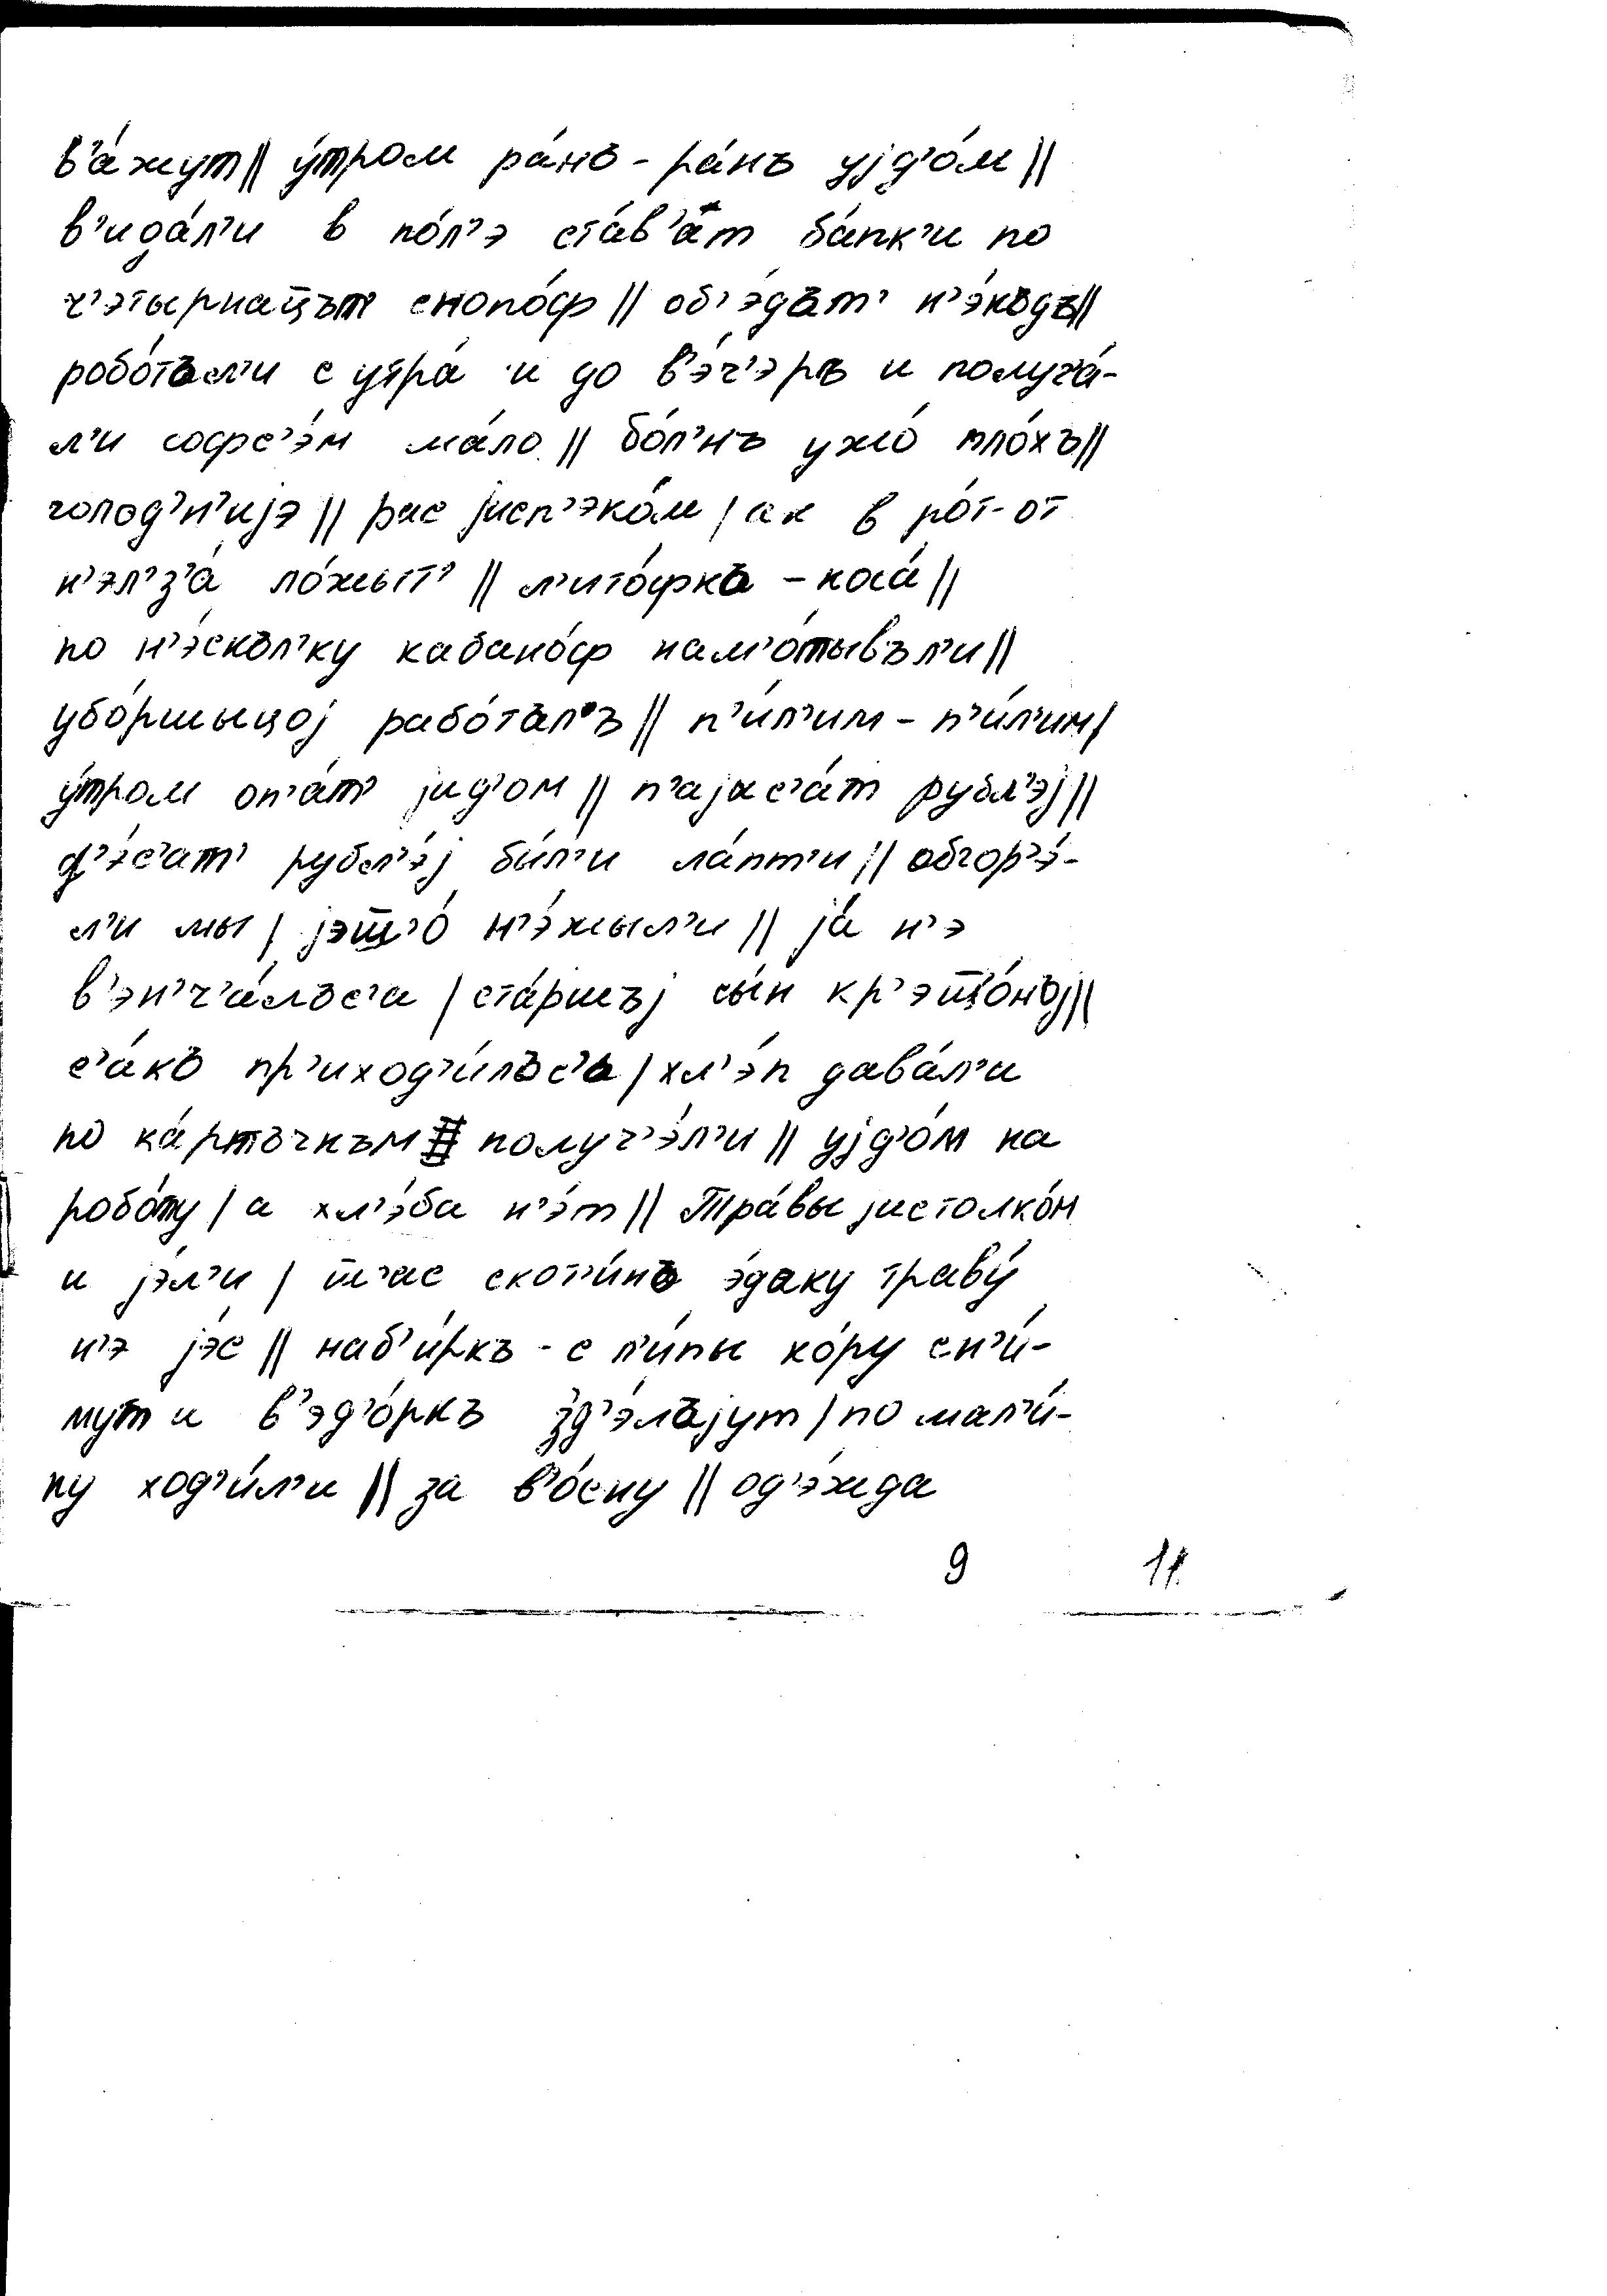 в’а́жут || у́тром ра́нъ - ра́нъ уjд’о́м ||
в’ида́л’и в по́л’э ста́в’ат ба́пк’и по
ч’этырнац̅ът снопо́ф || об’э́дът’ н’э́къдъ ||
робо́тъл’и с утра́ и до в’э́ч’эръ и получа́-
л’и софс’э́м ма́ло || бо́л’нъ ужо́ пло́хъ ||
голод’н’иjэ || рас jисп’эко́м | ак в ро́т-от
н’эл’з’а́ ло́жыт’ || л’ито́фка - коса́ ||
по н’э́скъл’ку кабано́ф нам’о́тывъл’и ||
убо́ршыцоj рабо́талъ || п’и́л’им - п’и́л’им |
у́тром оп’а́т’ jид’ом || п’аjас’а́т рубл’эj ||
д’э́с’ат’ рубл’э́j бы́л’и ла́пт’и || обгор’э́-
л’и мы | jэш̅’о́ н’э́жыл’и || jа́ н’э
в’эн’ч’а́лъс’а | ста́ршъj сы́н кр’эш̅’о́нъj ||
с’а́къ пр’иход’и́лъс’ъ | хл’э́п дава́л’и
по ка́ртъчкъм получ’э́л’и || уjд’о́м на
робо́ту | а хл’э́ба н’э́т || Тра́вы jистолко́м
и jэ́л’и | ш̅’ас скот’и́нъ э́даку траву́
н’э jэ́с || наб’и́ркъ - с л’и́пы ко́ру сн’и́-
мут и в’эд’о́ркъ зд’э́лъjут | по мал’и́-
ну ход’и́л’и || за в’о́сну || од’э́жда
9 11